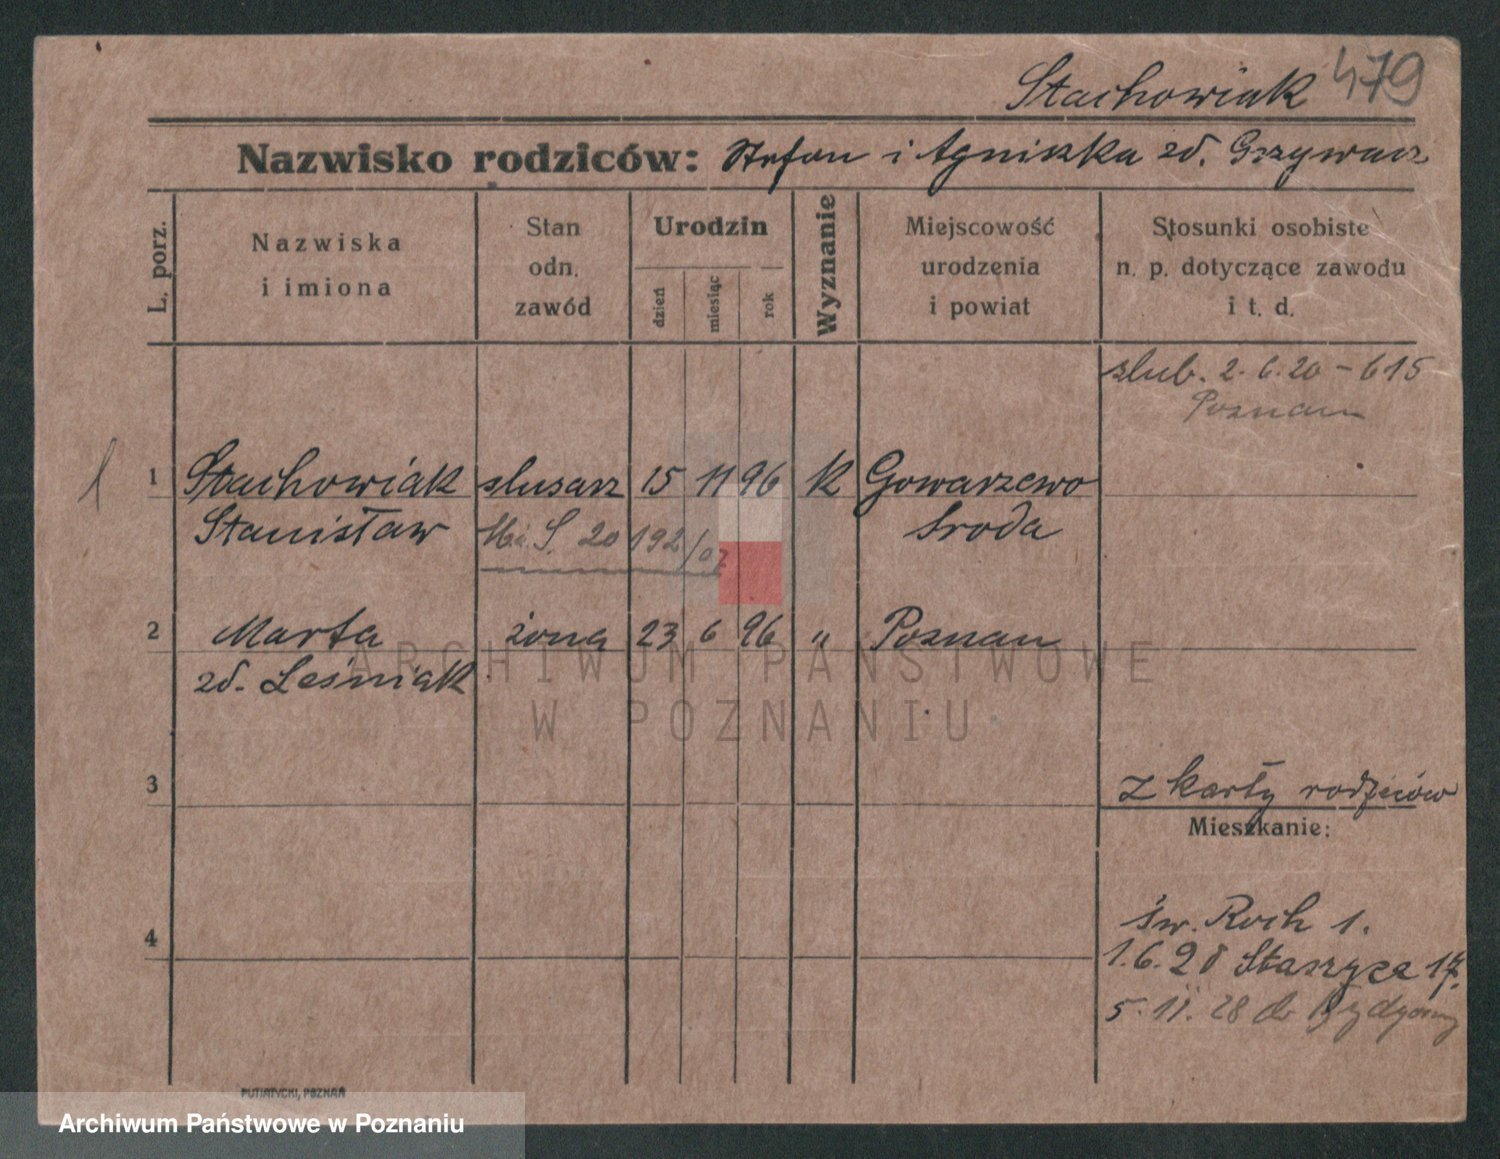 Stachowiak 479
Nazwisko rodziców: Stefan i Agnieszka zd. Grzywacz
L. porz.
Nazwiska
i imiona
Stan
odn.
zawód
Urodzin
dzień
miesiąc
rok
Wyznanie
Miejscowość
urodzenia
i powiat
Stosunki osobiste
n. p. dotyczące zawodu
i t. d.
slub. 2.6.20 - 615
Poznan
1 Stachowiak slusarz 15 11 96 K Gowarzewo
Stanisław Sroda
20 192
2 Marta żona 23 6 96 " Poznan
zd. Leśniak
3
z karty rodziców
Mieszkanie:
4
św. Roch 1.
1.6.28 Staszyca 17.
5.11.28 do Bydgoszczy
PUTIATYCKI, POZNAŃ
ARCHIWUM PAŃSTWOWE
W POZNANIU
Archiwum Państwowe w Poznaniu